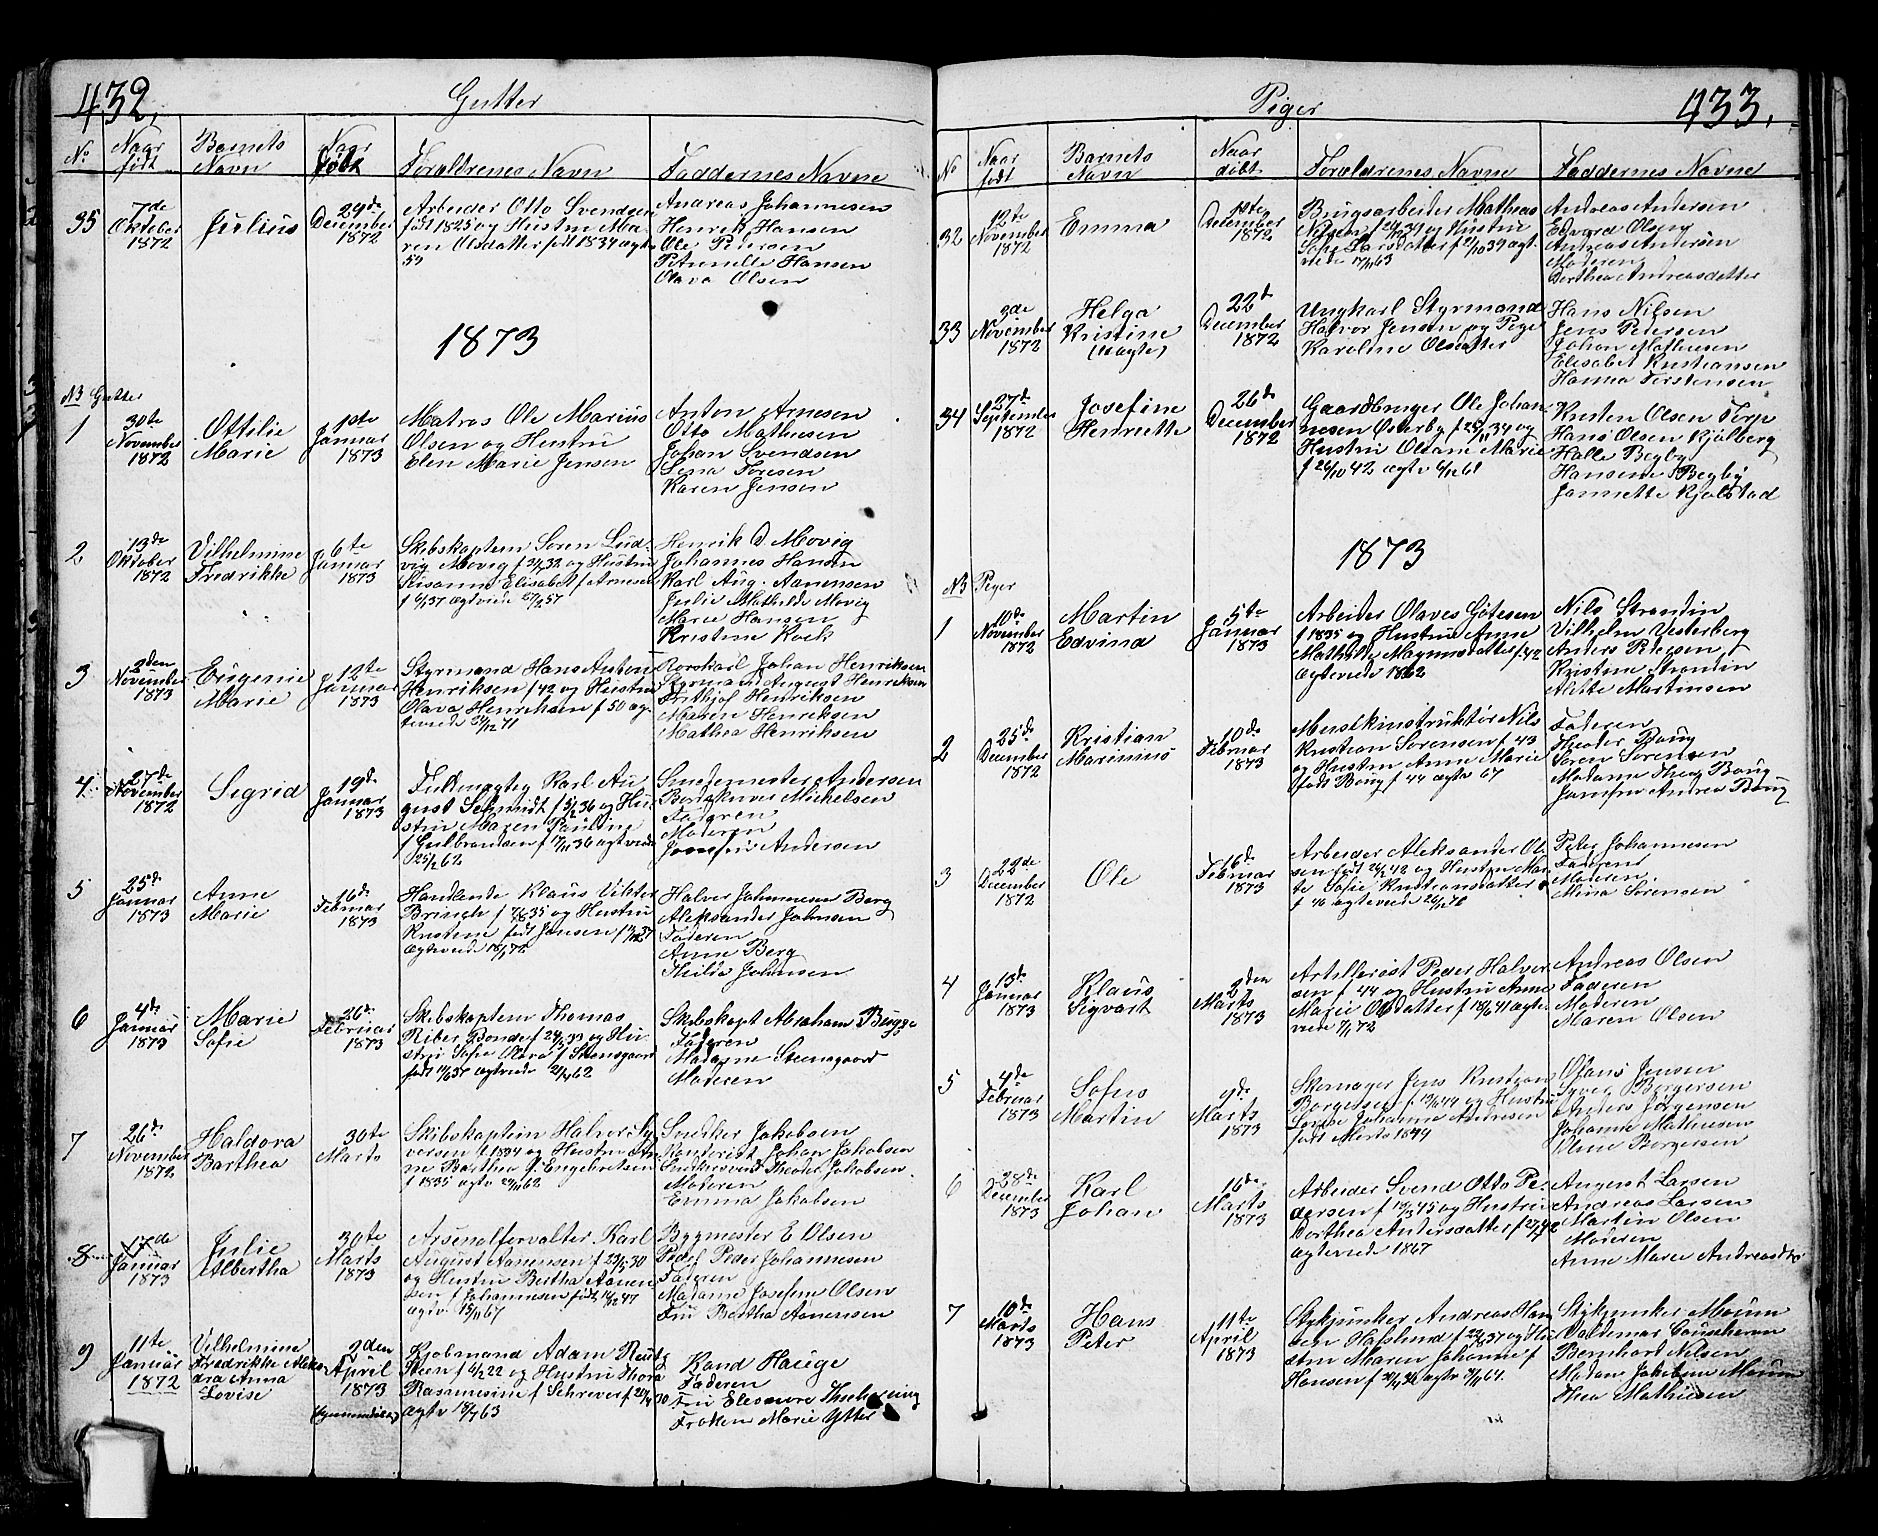 432,
Gutter
No
Naar født
Barnets Navn
Naar Døbt
Forældrenes Navn
Faddernes Navne
35
7de Oktober 1872
Julius
29de December 1872
Arbeider Otto Svendsen
født 1825 og Hustru Ma-
ren Olsdatter født 1834 ægtv
59
Andreas Johannesen
Henrik Hansen
Ole Pedersen
Petronelle Hansen
Olava Olsen
1873
NB Gutter
1
30te November 1872
Ottilie Marie
1ste Januar 1873
Matros Ole Marius
Olsen og Hustru
Elen Marie Jensen
Anton Arnesen
Otto Mathisen
Johan Svendsen
Lena Toresen
Karen Jensen
2
13de Oktober 1872
Vilhelmine Fredrikke
6te Januar 1873
Skibskaptein Søren Lud-
vig Movig og Hustru
Susanne Elisabet f Arnesen
Henrik D Movig
Johannes Hansen
Karl Aug. Aanensen
Julie Mathilde Movig
Marie Hansen
Kristine Kock
3
2den November 1873
Eugenie Marie
12te Januar 1873
Styrmand Hans Anton
Henriksen f 42 og Hustru
Olava Henriksen f 50 æg-
teviede 26/12 71
Rorskarl Johan Henriksen
Styrmand August Henriksen
Frithjof Henriksen
Maren Henriksen
Mathea Henriksen
4
27de November 1872
Sigrid
19de Januar 1873
Fuldmægtig Karl Au
gust Schmidt f 5/2 36 og Hu-
stru Maren Pauline
f Gulbrandsen f 17/11 36 ægteviede
25/2 62
Smedemester Andersen
Bertskriver Michelsen
Faderen
Moderen
Jomfru Andersen
5
25de Januar 1873
Anne Marie
16de Februar 1873
Handlende Klaus Vikter
Brinch f 35 og Hustru
Kristine født Jensen
Ægteviede
Halver Johannesen Berg
Aleksander Johnsen
Faderen
Anne Berg
Thilda Johnsen
6
4de Januar 1873
Marie Sofie
26de Februar 1873
Skibskaptein Thomas
Riber Bonde og Hu-
stru Sofie Olava f Stensgaard
ægteviede 2/4 62
Skibskapt Abraham Bugge
Faderen
Madame Steensgaard
Moderen
7
26de November 1872
Haldora Barthea
30te Marts
Skibskaptein Halvor Sy-
versen f 1834 og Hustru An-
ne Barthea f. Engebretsen
f 1835 ægtv 29/11 62
Snedker Jakobsen
Kontorist Johan Jakobsen
Snedkersvend Theodor Jakobsen
Moderen
Emma Jakobsen
8
17de Januar 1873
Julie Albertha
30te Marts 1873
Arsenalforvalter Karl
August Aanensen f 23/5 30
og Hustru Bertha Aanen
sen f Johannesen født 16/12 47
ægtv 15/11 67
Bygmester E Olsen
Peder Johannesen
Faderen
Madame Josefine Olsen
Fru Bertha Aanensen
9
11te Januar 1872
Vilhelmine Fredrikke Alek- dra Anna Lovise
2den April 1873
Kjøbmand Adam Reutz
Steen f 6/12 22 og Hustru Thora
Rasmusine f Schrever
ægtv 18/7 63
Kand Hauge
Faderen
Fru Eleonore
Frøken Marie Ytter
433.
Piger
No
Naar født
Barnets Navn
Naar døbt
Forældrenes Navne
Faddernes Navne
32
12te November 1872
Emma
December 1872
Brugsarbeider Mathias
Nilsen og Hustru
Sofie Larsdatter f 2/10 39 ægt-
viede 17/11 63
Andreas Andersen
Edvard Olsen
Andreas Andersen
Moderen
Berthea Andreasdatter
33
3de November 1872
Helga Kristine (Uægte)
22de December 1872
Ungkarl Styrmand
Halvor Jensen og Pige
Karoline Olsdatter
Hans Nilsen
Jens Pedersen
Johan Mathiesen
Elisabet Kristiansen
Hanna Torstensen
34
27de September 1872
Josefine Henriette
26de December 1872
Gaardbruger Ole Johan
nesen Østerby f 25/11 34 og
Hustru Oleane Marie
f 26/10 42 ægtv 6/12 61
Kristen Olsen Torp
Hans Olsen Kjølberg
Halle Begby
Hansene Begby
Jannette Kjølstad
1873
NB Piger
1
10de November 1872
Martin Edvind
5te Januar 1873
Arbeider Olaves Gøtesen
f 1835 og Hustru Anne
Mathilde Magnusdatter f 42
Ægteviede 1862
Nils Strandin
Vilhelm Vesterberg
Anders Petersen
Kristine Strandin
Mette Martinsen
2
25de December 1872
Kristian Marinius
10de Februar 1873
Musikinstruktør Nils
Kristian Sørensen f 43
og Hustru Anne Marie
født Boug f 44 ægtv 67
Faderen
Theodor Boug
Søren Sørensen
Madame Thea Boug
Jomfru Andrea Boug
3
22de December 1872
Ole
16de Februar 1873
Arbeider Aleksander Ol-
sen født 26/2 42 og Hustru Mar-
te Sofie Kristiansdatter
f 46 ægteviede
Peter Johannesen
Faderen
Moderen
Mina Sørensen
4
15de Januar 1873
Klaus Sigvart
2den Marts 1873
Artillerist Peder Halver
sen f 44 og Hustru Anne
Marie Olsdatter f 18/6 41 ægte-
viede 7/11 72
Andreas Olsen
Faderen
Moderen
Maren Olsen
5
4de Februar 1873
Sofus Martin
9de Marts 1873
Skomager Jens Kristian
Borgersen og Hustru
Lovise Johanne Andresen
født Marts 1849
Olaus Jensen
Syver Borgersen
Anders Jørgensen
Johanne Mathisen
Oline Borgersen
6
28de December 1873
Karl Johan
16de Marts 1873
Arbeider Svend Otto Pe-
dersen f 19/3 45 og Hustru
Dorthea Andersdatter
ægteviede 1867
August Larsen
Andreas Larsen
Martin Olsen
Moderen
Anne Marie Andreasdtr
7
10de Marts 1873
Hans Peter
11te April 1873
Stykjunker Andreas Han
sen Hafslund f 22/8 37 og Hu-
stru Maren Johanne f
Hansen
Stykjunker Moum
Valdemar
Bernhard Nilsen
Madam Jakobine Moum
Thea Mathiesen